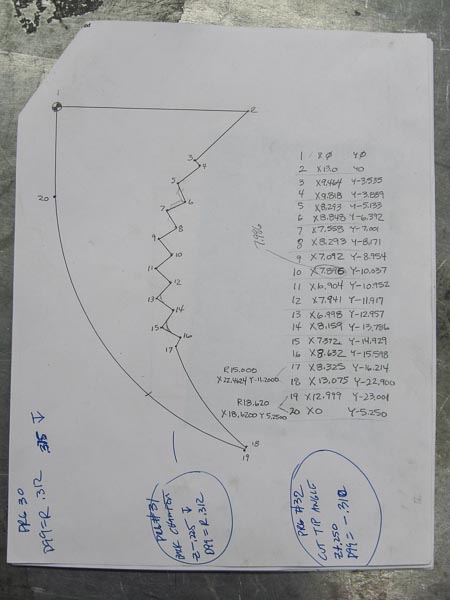 1
2
3
4
5
6
7
8
9
10
11
12
13
14
15
16
17
18
19
20
1 XØ YØ
2 X13.0 Y0
3 X9.464 Y-3.535
4 X9.818 Y-3.889
5 X8.293 Y-5.133
6 X8.848 Y-6.392
7 X7.558 Y-7.001
8 X8.293 Y-8.171
9 X7.092 Y-8.954
10 Y-10.037
7.986
11 X6.904 Y-10.952
12 X7.941 Y-11.917
13 X6.998 Y-12.957
14 X8.159 Y-13.786
15 X7.372 Y-14.929
16 X8.632 Y-15.598
17 X8.325 Y-16.214
18 X13.075 Y-22.900
19 X12.999 Y-23.001
20 X0 Y-5.250
R15.000
X22.4624 Y-11.2000
R18.620
X18.6200 Y5.2500
PRG 30
D99=R .312
.315 ↓
PRG #31
BACK CHAMFER
Z-.225 ↓
D99=R.312
PRG #32
CUT TIP ANGLE
Z+.250
D99=-.312